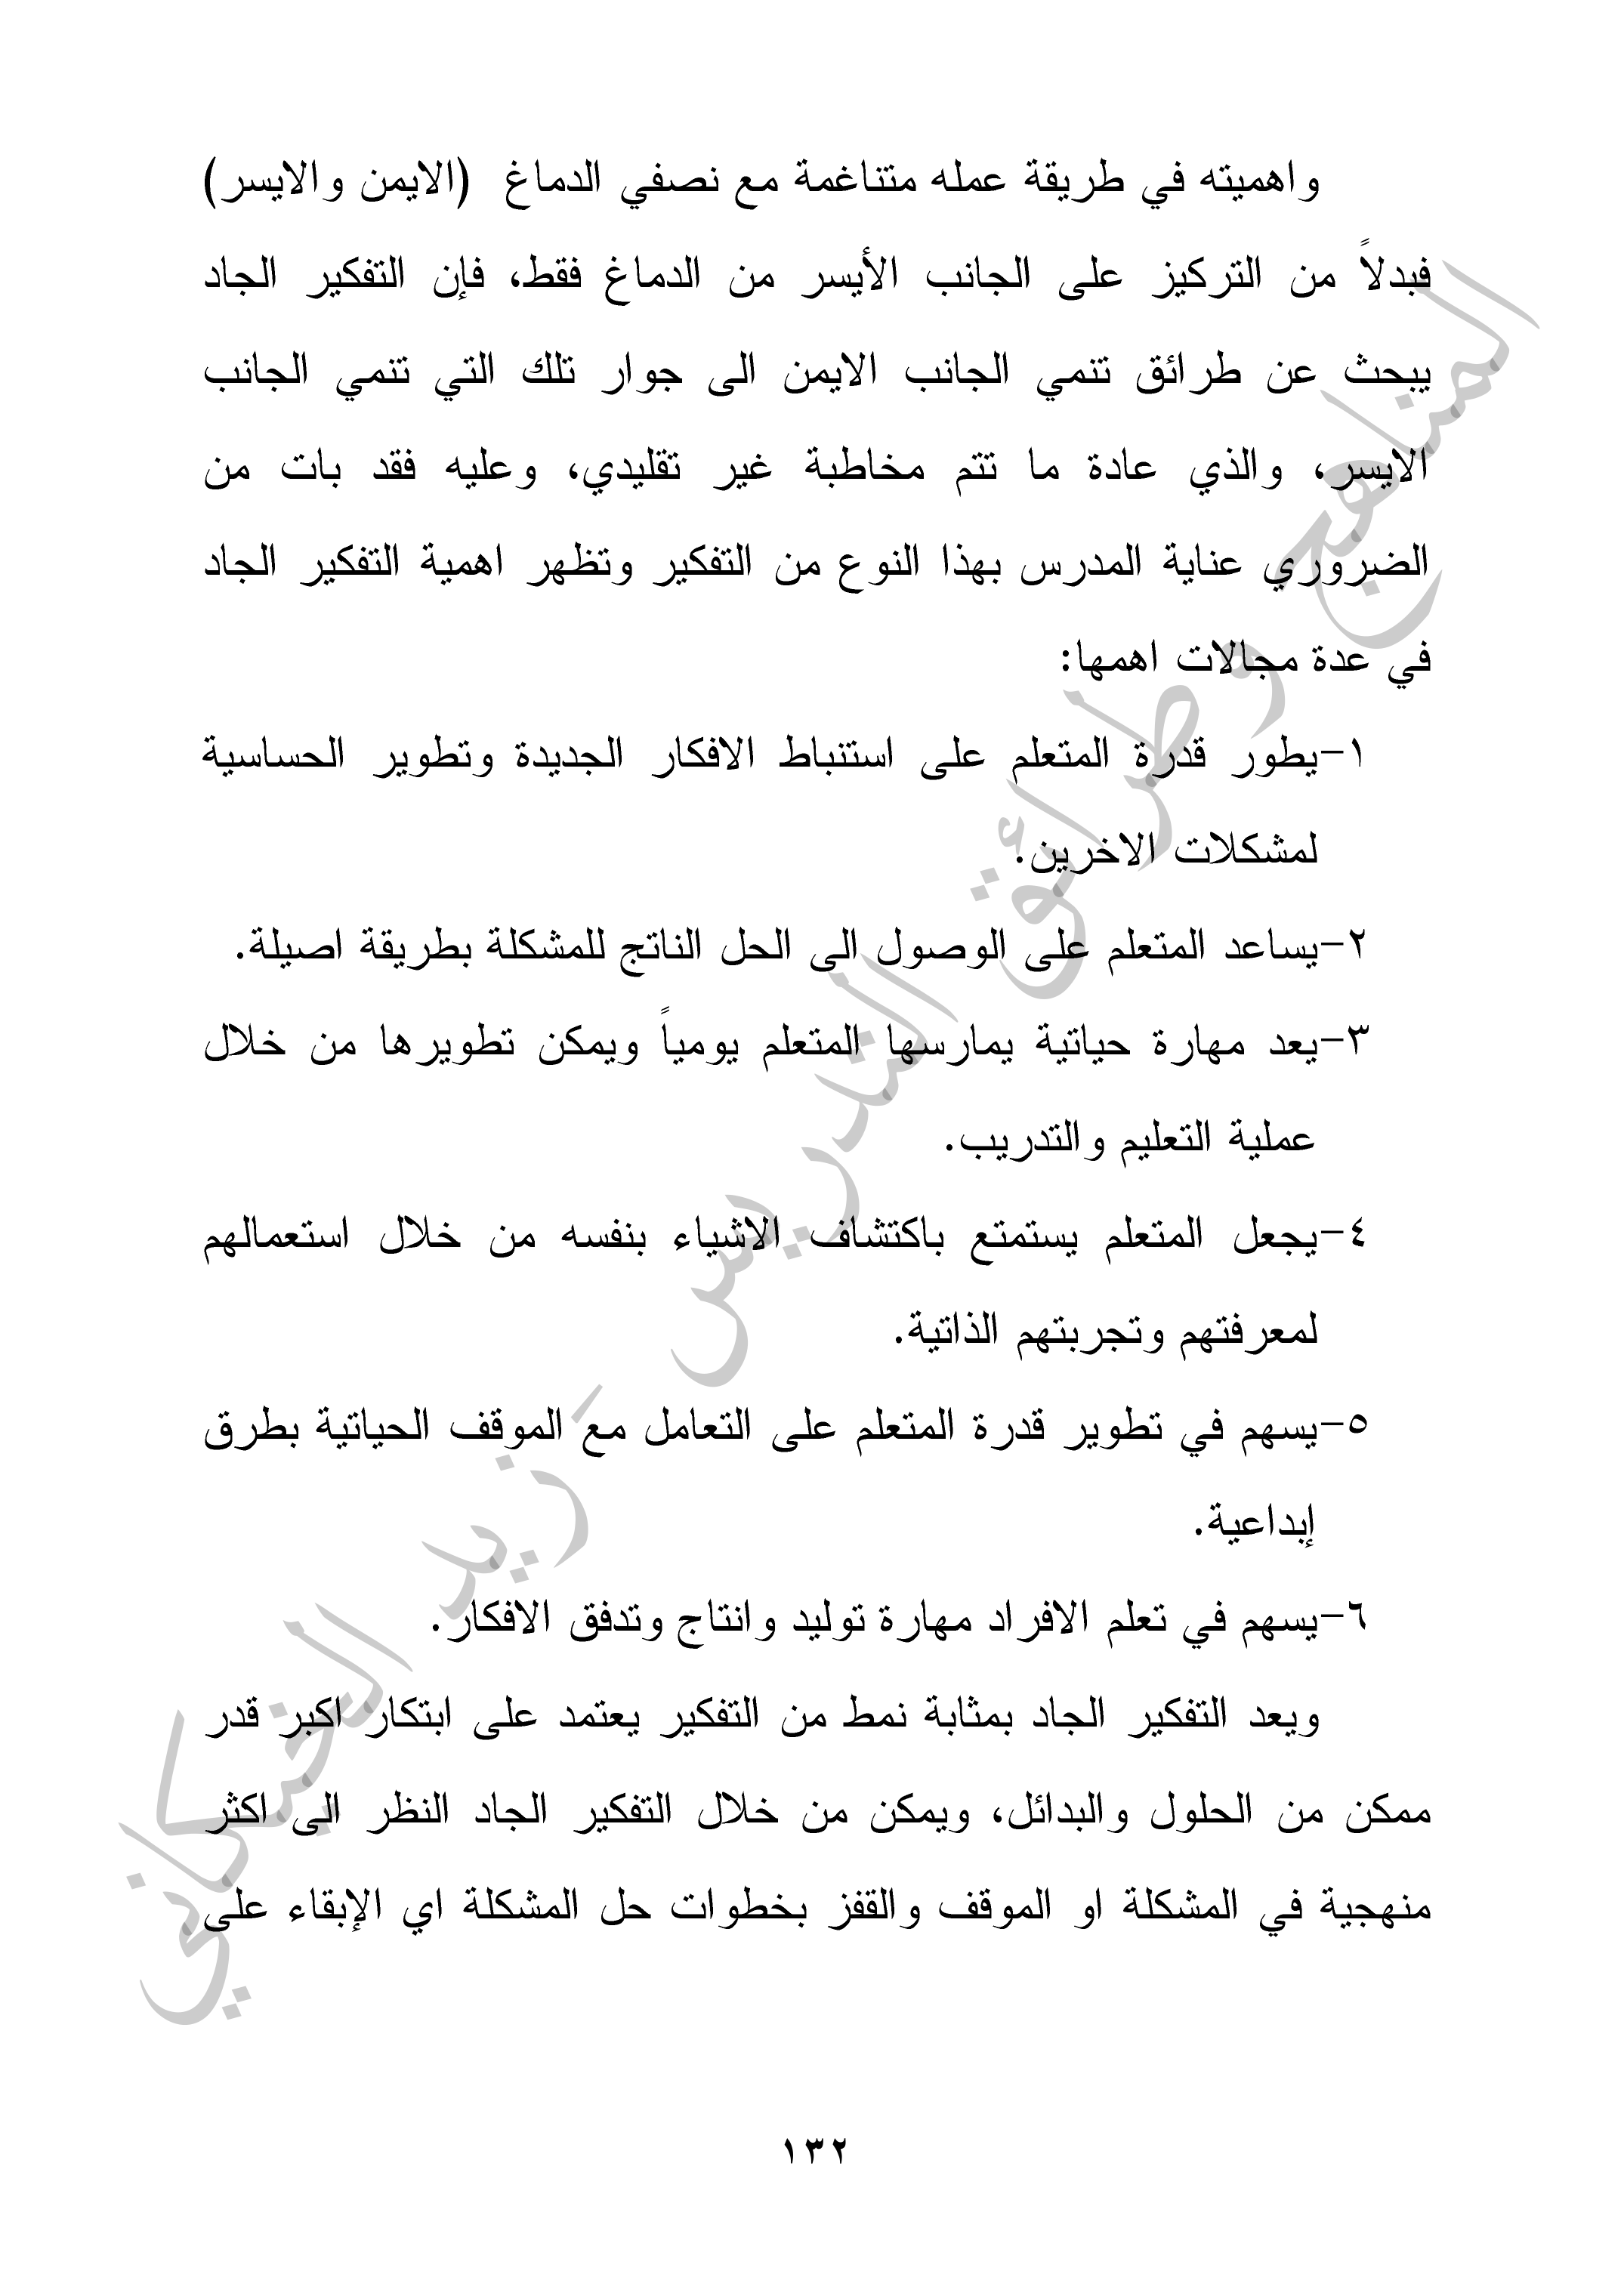 واهميته في طريقة عمله متناغمة مع نصفي الدماغ (الايمن والايسر)
فبدلاً من التركيز على الجانب الأيسر من الدماغ فقط، فإن التفكير الجاد
يبحث عن طرائق تنمي الجانب الايمن الى جوار تلك التي تنمي الجانب
الايسر، والذي عادة ما تتم مخاطبة غير تقليدي، وعليه فقد بات من
الضروري عناية المدرس بهذا النوع من التفكير وتظهر اهمية التفكير الجاد
في عدة مجالات اهمها:
١-يطور قدرة المتعلم على استنباط الافكار الجديدة وتطوير الحساسية
لمشكلات الاخرين.
٢-يساعد المتعلم على الوصول الى الحل الناتج للمشكلة بطريقة اصيلة.
٣-يعد مهارة حياتية يمارسها المتعلم يومياً ويمكن تطويرها من خلال
عملية التعليم والتدريب.
٤-يجعل المتعلم يستمتع باكتشاف الاشياء بنفسه من خلال استعمالهم
لمعرفتهم وتجربتهم الذاتية.
٥-يسهم في تطوير قدرة المتعلم على التعامل مع الموقف الحياتية بطرق
إبداعية.
٦-يسهم في تعلم الافراد مهارة توليد وانتاج وتدفق الافكار.
ويعد التفكير الجاد بمثابة نمط من التفكير يعتمد على ابتكار اكبر قدر
ممكن من الحلول والبدائل، ويمكن من خلال التفكير الجاد النظر الى اكثر
منهجية في المشكلة او الموقف والقفز بخطوات حل المشكلة اي الإبقاء على
المناهج وطرائق التدريس - زيد الخيكاني
١٣٢